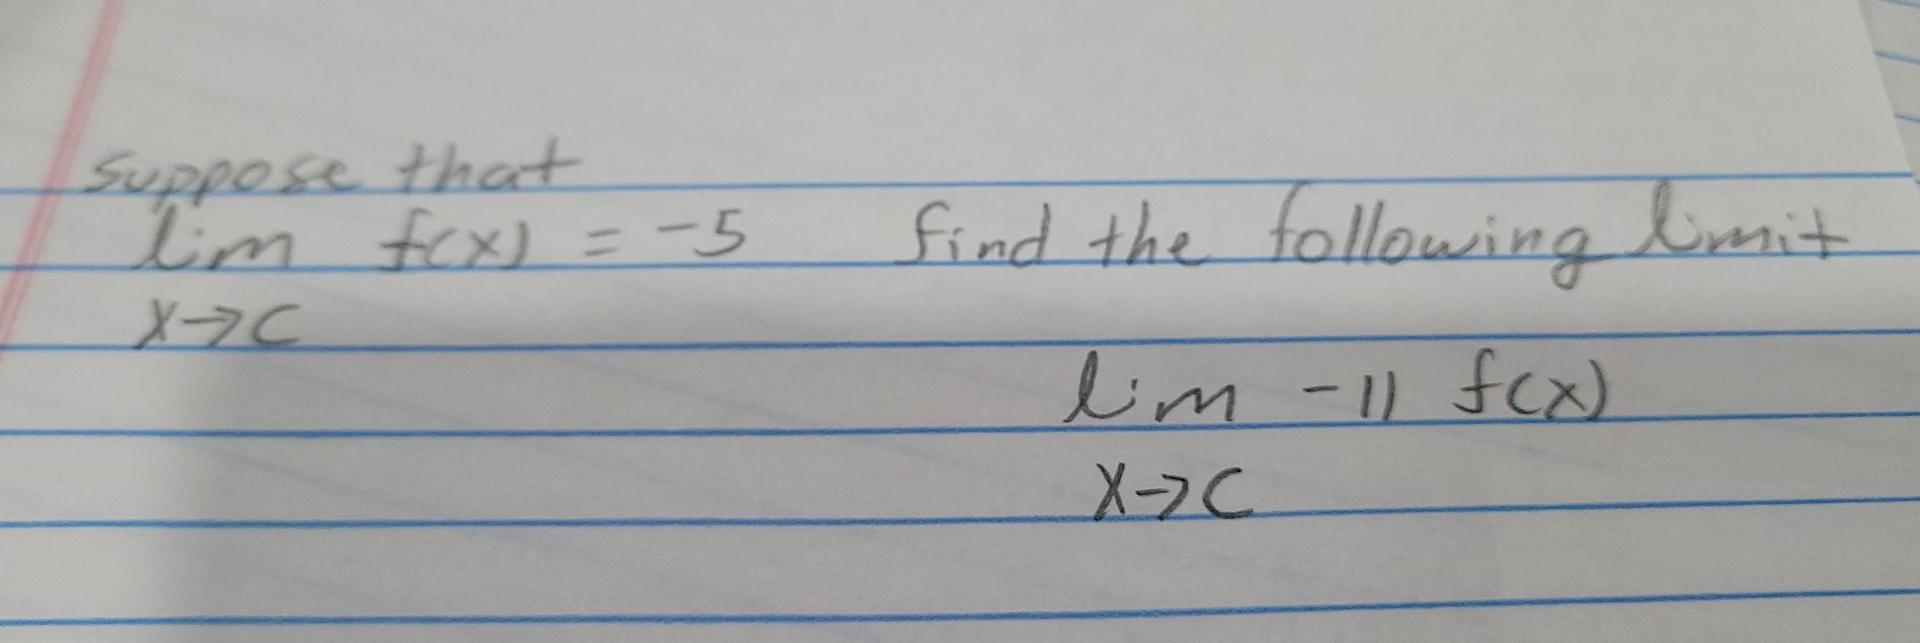 suppose that
lim f(x) = -5 find the following limit
x→c
lim -11 f(x)
x→c